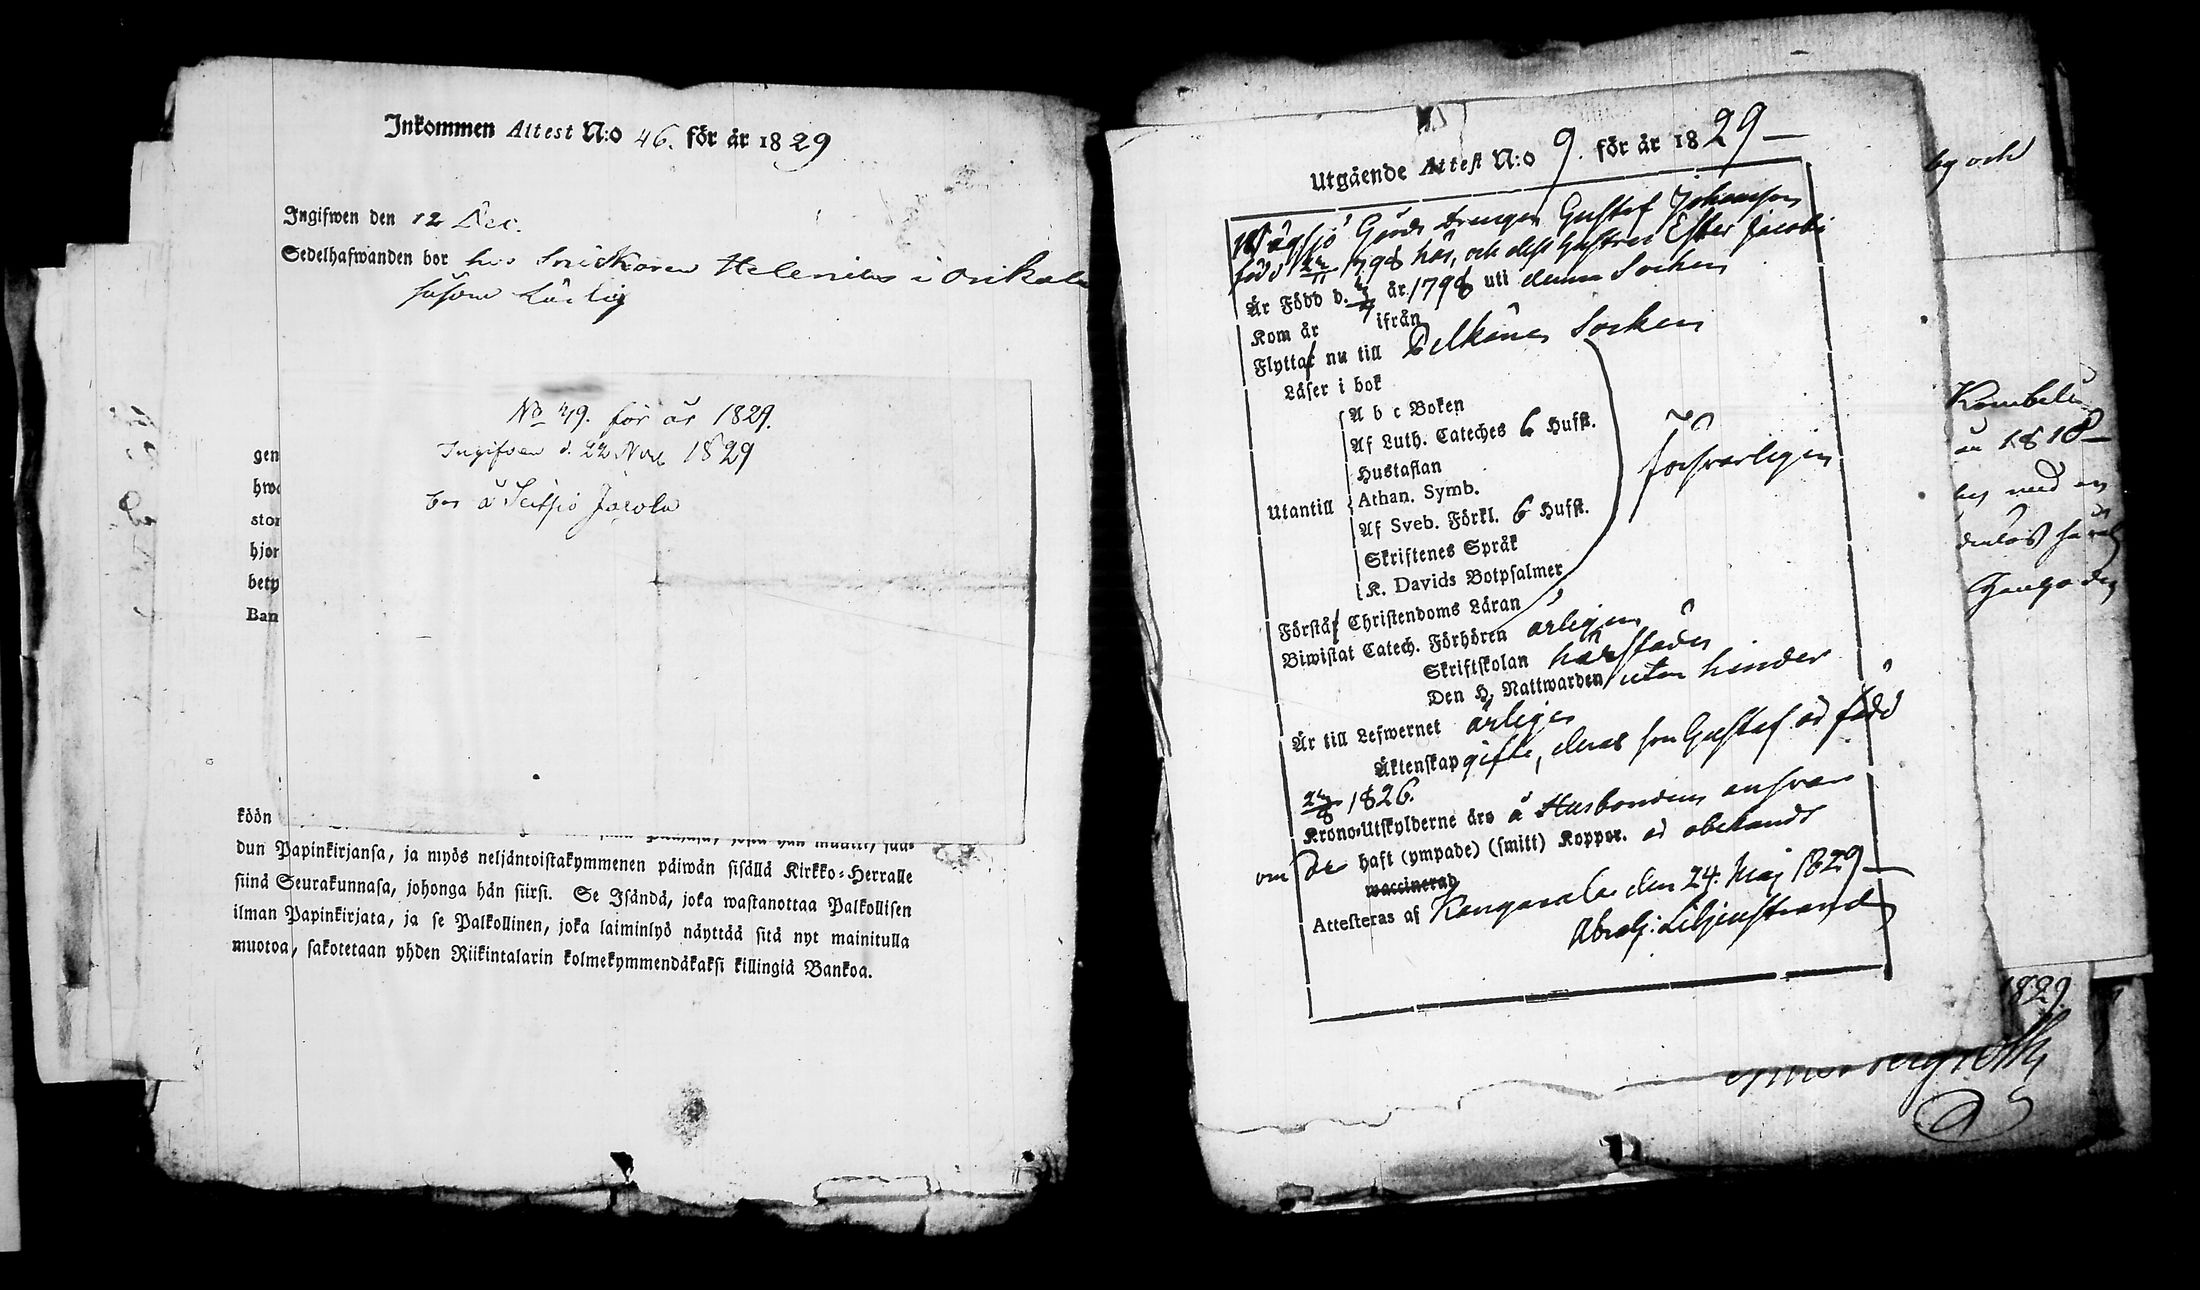 Inkommen Attest N:o 46. för år 1829
Ingifwen den 12 Dec.
Sedelhafwanden bor hos Snickaren Helenius i Onkala
såsom Lärling
No 49. för år 1829.
Ingifven d. 22 Nov 1829
bor å Seitsio Jacola
gen
hwa
stor
hjor
bety
Ban
köön
dun Papinkirjansa, ja myös neljäntoistakymmenen päiwän sisällä Kirkko-Herralle
siinä Seurakunnasa, johonga hän siirsi. Se Isändä, joka wastanottaa Palkollisen
ilman Papinkirjata, ja se Palkollinen, joka laiminlyö näyttää sitä nyt mainitulla
muotoa, sakotetaan yhden Riikintalarin kolmekymmendäkaksi killingiä Bankoa.
Utgående Attest N:o 9. för år 1829
Gårds drengen Gustaf Johansson
född 1798 här, och dess hustru Ester Jacobs
Är Född d. år 1798 uti denna Socken
Kom år ifrån
Flyttar nu till Pelkäne Socken
Läser i bok
A b c Boken
Af Luth. Cateches 6 Hufst.
Hustaflan
Utantill Athan. Symb.
försvarligen
Af Sveb. Förkl. 6 Hufst.
Skriftenes Språk
K. Davids Botpsalmer
Förstår Christendoms Läran
Biwistat Catech. Förhören ärligen
Skriftskolan härstädes
Den H. Nattwarden utan hinder
Är till Lefwernet ärliga
Äktenskap gifte, deras son Gustaf är född
1826.
Krono-Utskylderne äro å Husbondens ansvar
om de haft (ympade) (smitt) Koppor. är obekandt
waccinerad
Attesteras af Kangasala den 24. Maj 1829
Abrah: Liljenstrand
by och
än 1818
med en
1829.